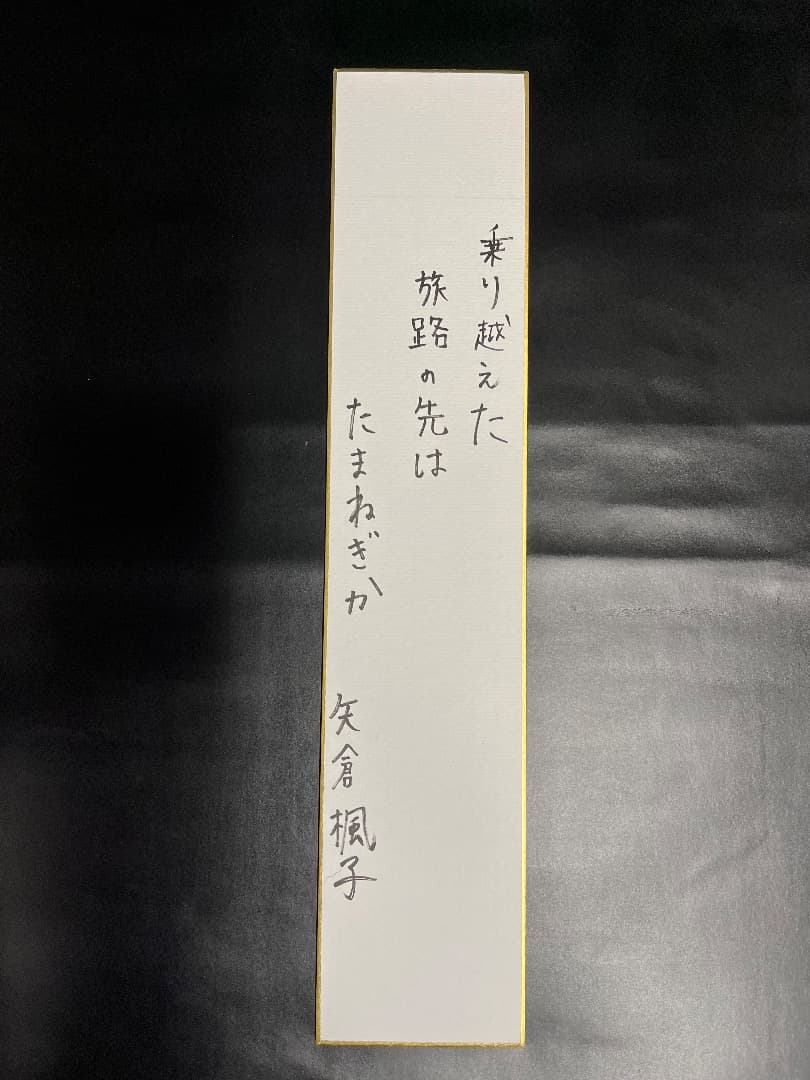 乗り越えた
旅路の先は
たまねぎか
矢倉楓子